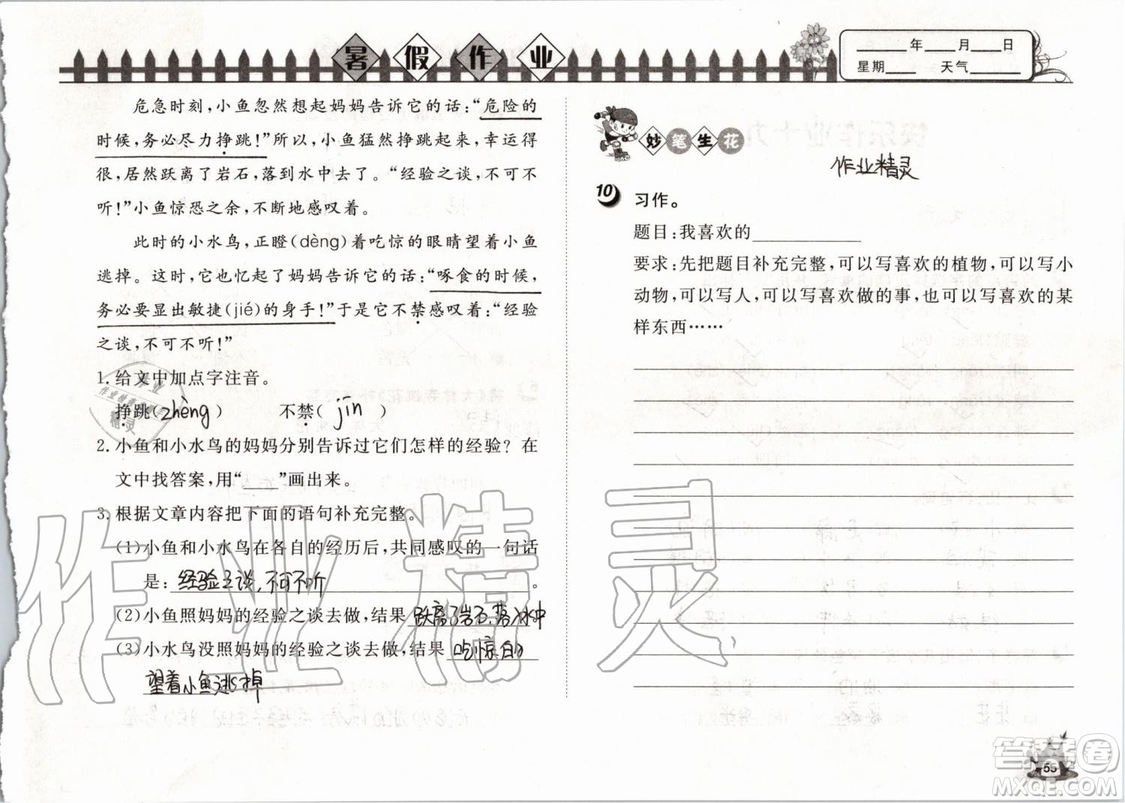 暑假作业
____年____月____日
星期____ 天气____
危急时刻，小鱼忽然想起妈妈告诉它的话：“危险的
时候，务必尽力挣跳！”所以，小鱼猛然挣跳起来，幸运得
很，居然跃离了岩石，落到水中去了。“经验之谈，不可不
听！”小鱼惊恐之余，不断地感叹着。
此时的小水鸟，正瞪(dèng)着吃惊的眼睛望着小鱼
逃掉。这时，它也忆起了妈妈告诉它的话：“啄食的时候，
务必要显出敏捷(jié)的身手！”于是它不禁感叹着：“经验
之谈，不可不听！”
1. 给文中加点字注音。
挣跳(zhèng) 不禁(jīn)
2. 小鱼和小水鸟的妈妈分别告诉过它们怎样的经验？在
文中找答案，用“____”画出来。
3. 根据文章内容把下面的语句补充完整。
(1)小鱼和小水鸟在各自的经历后，共同感叹的一句话
是：经验之谈，不可不听。
(2)小鱼照妈妈的经验之谈去做，结果跃离了岩石，落入水中
(3)小水鸟没照妈妈的经验之谈去做，结果吃惊的
望着小鱼逃掉
妙笔生花
作业精灵
10 习作。
题目：我喜欢的__________
要求：先把题目补充完整，可以写喜欢的植物，可以写小
动物，可以写人，可以写喜欢做的事，也可以写喜欢的某
样东西……
作业精灵
55
答案圈
MXQE.COM